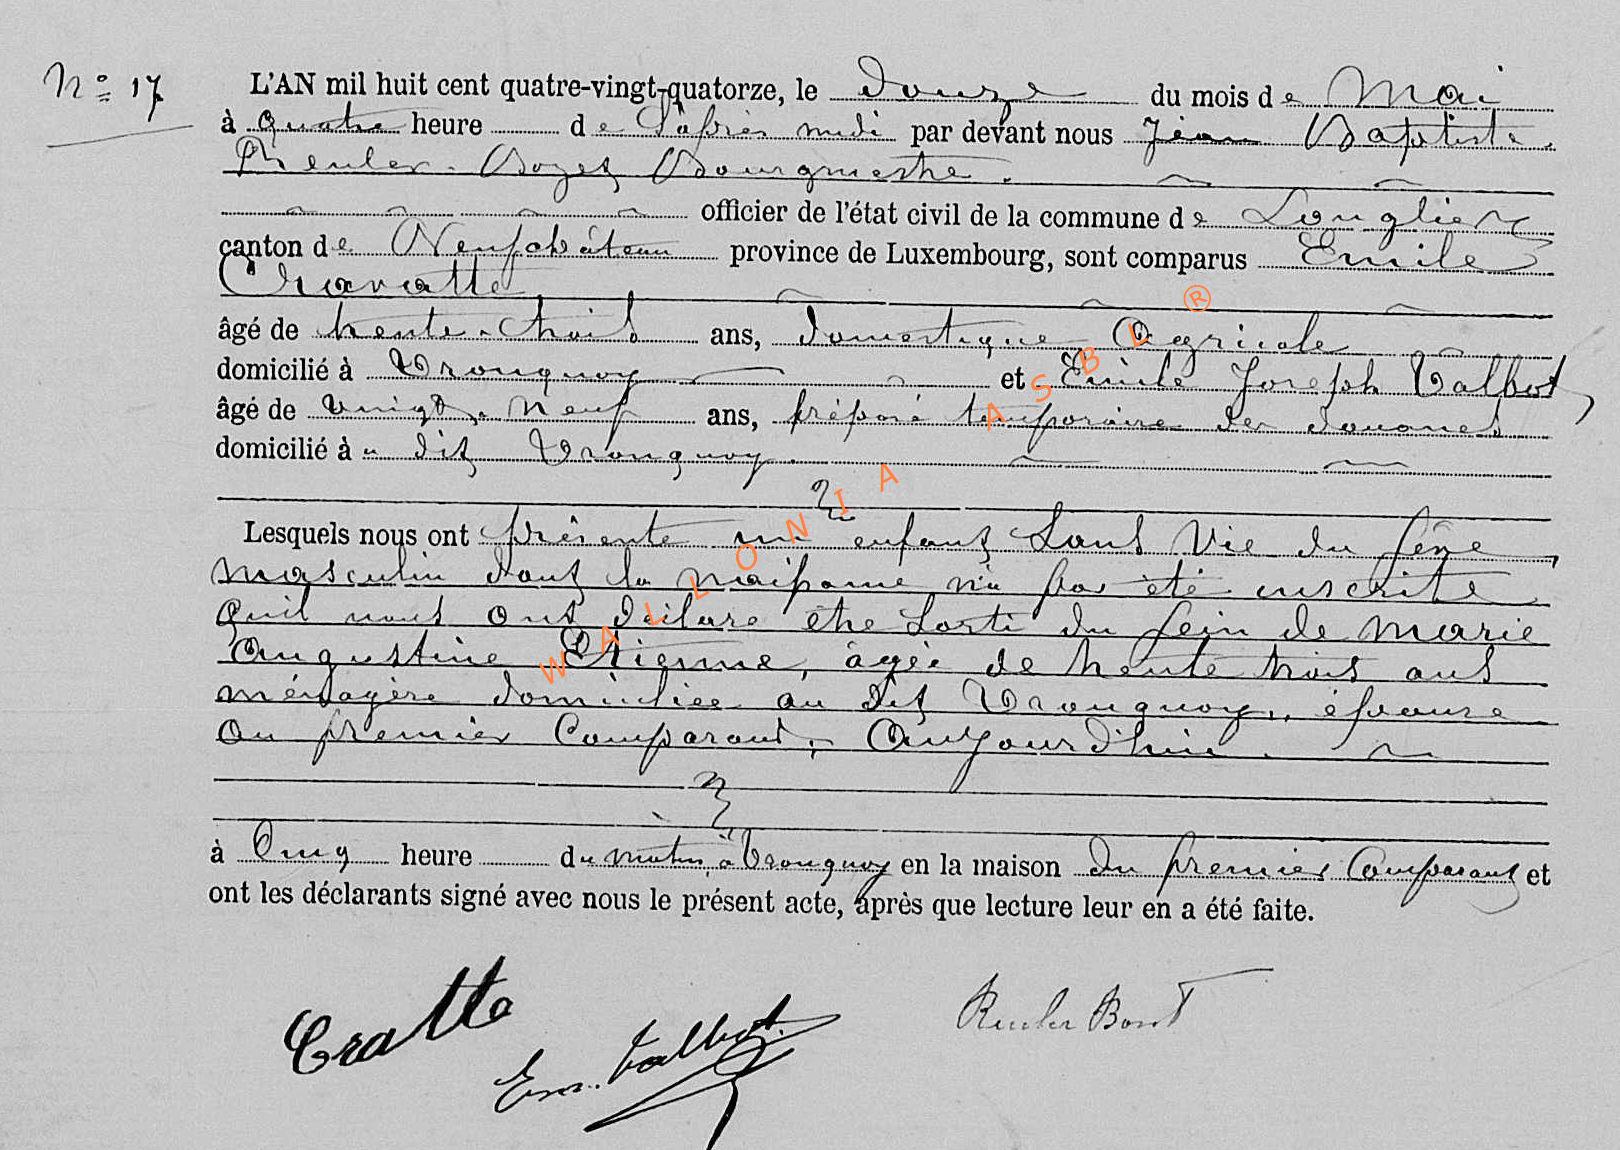 N° 17
L'AN mil huit cent quatre-vingt-quatorze, le douze du mois de Mai
à quatre heure de l'après midi par devant nous Jean Baptiste
Reuler Bozet Bourgmestre.
officier de l'état civil de la commune de Longlier
canton de Neufchâteau province de Luxembourg, sont comparus Emile
Cravatte
âgé de trente-trois ans, domestique Agricole
domicilié à Tronquoy et Emile Joseph Talbot,
âgé de vingt-neuf ans, préposé temporaire des douanes
domicilié à u dit Tronquoy
Lesquels nous ont présenté un enfant sans vie du sexe
masculin dont la naissance n'a pas été inscrite
qu'il nous ont déclaré être sorti du sein de Marie
Augustine Etienne, âgée de trente trois ans
ménagère domiciliée au dit Tronquoy, épouse
au premier Comparant, Aujourd'hui
à Cinq heure du matin, à Tronquoy en la maison du premier Comparant et
ont les déclarants signé avec nous le présent acte, après que lecture leur en a été faite.
Cratte
Em. Talbot
Reuler
WALLONIA ASBL ®